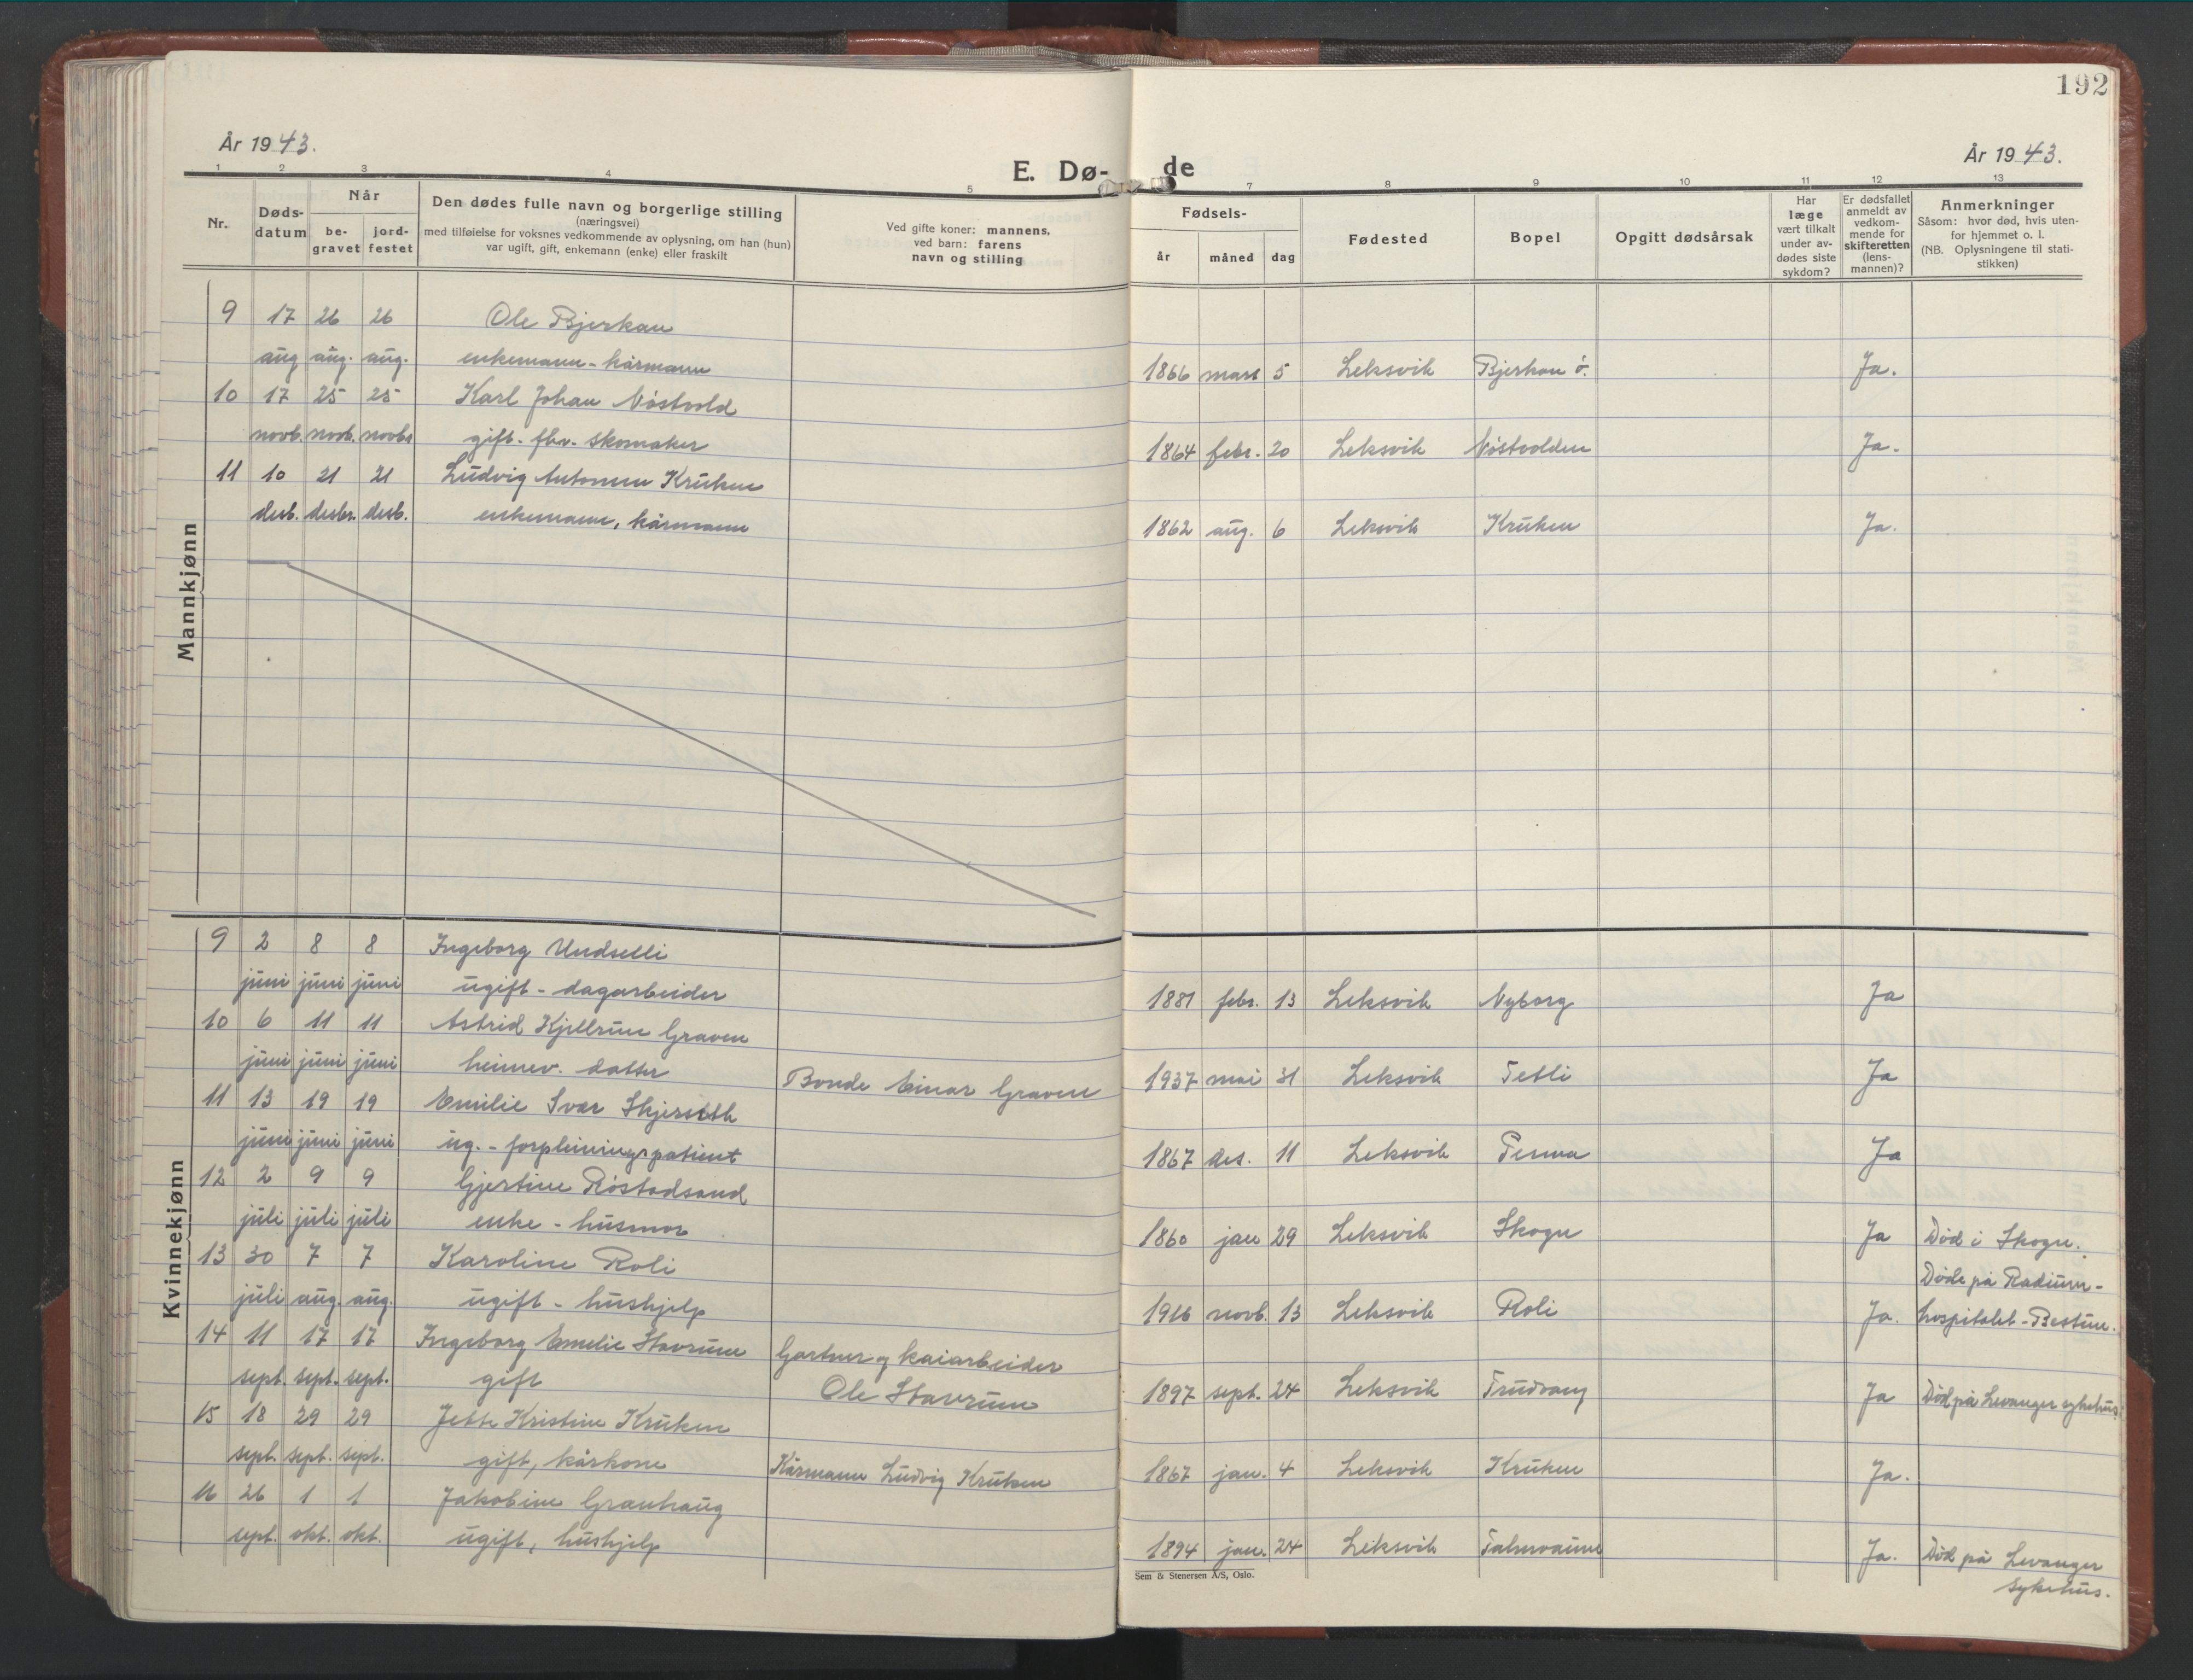 192
År 1943.
År 1943.
E. Dø-
de
1 2 3 4 5 7 8 9 10 11 12 13
Nr.
Døds-
datum
Når
be-
gravet
jord-
festet
Den dødes fulle navn og borgerlige stilling
(næringsvei)
med tilføielse for voksnes vedkommende av oplysning, om han (hun)
var ugift, gift, enkemann (enke) eller fraskilt
Ved gifte koner: mannens,
ved barn: farens
navn og stilling
Fødsels-
år måned dag
Fødested
Bopel
Opgitt dødsårsak
Har
læge
vært tilkalt
under av-
dødes siste
sykdom?
Er dødsfallet
anmeldt av
vedkom-
mende for
skifteretten
(lens-
mannen)?
Anmerkninger
Såsom: hvor død, hvis uten-
for hjemmet o. l.
(NB. Oplysningene til stati-
stikken)
Mannkjønn
9 17 26 26 Ole Bjerkan
aug aug. aug. enkemann - kårmann 1866 mars 5 Leksvik Bjerkan ø. Ja.
10 17 25 25 Karl Johan Nøstvold
novb. novb. novbr gift - fhv. skomaker 1864 febr. 20 Leksvik Nøstvolden Ja.
11 10 21 21 Ludvig Antonsen Kruken
desb. desbr. desb. enkemann, kårmann 1862 aug. 6 Leksvik Kruken Ja.
Kvinnekjønn
9 2 8 8 Ingeborg Undselli
juni juni juni ugift - dagarbeider 1881 febr. 13 Leksvik Nyborg Ja
10 6 11 11 Astrid Kjellrun Graven
juni juni juni heimev. datter Bonde Einar Graven 1937 mai 31 Leksvik Tetli Ja
11 13 19 19 Emilie Svar Skjerseth
juni juni juni ug. - forpleiningspatient 1867 des. 11 Leksvik Ja
12 2 9 9 Gjertine Røstadsand
juli juli juli enke - husmor 1860 jan 29 Leksvik Skogn Ja Død i Skogn.
13 30 7 7 Karoline Roli Døde på Radium-
juli aug. aug. ugift - hushjelp 1916 novb. 13 Leksvik Roli Ja. hospitalet - Bestun.
14 11 17 17 Ingeborg Emelie Stavrum Gartner og kaiarbeider
sept. sept. sept. gift Ole Stavrum 1897 sept. 24 Leksvik Trudvang Ja Død på Levanger sykehus.
15 18 29 29 Jette Kristine Kruken
sept. sept. sept. gift, kårkone Kårmann Ludvig Kruken 1867 jan. 4 Leksvik Kruken Ja.
16 26 1 1 Jakobine Granhaug
sept. okt. okt. ugift, hushjelp 1894 jan. 24 Leksvik Ja. Død på Levanger
sykehus.
Sem & Stenersen A/S, Oslo.